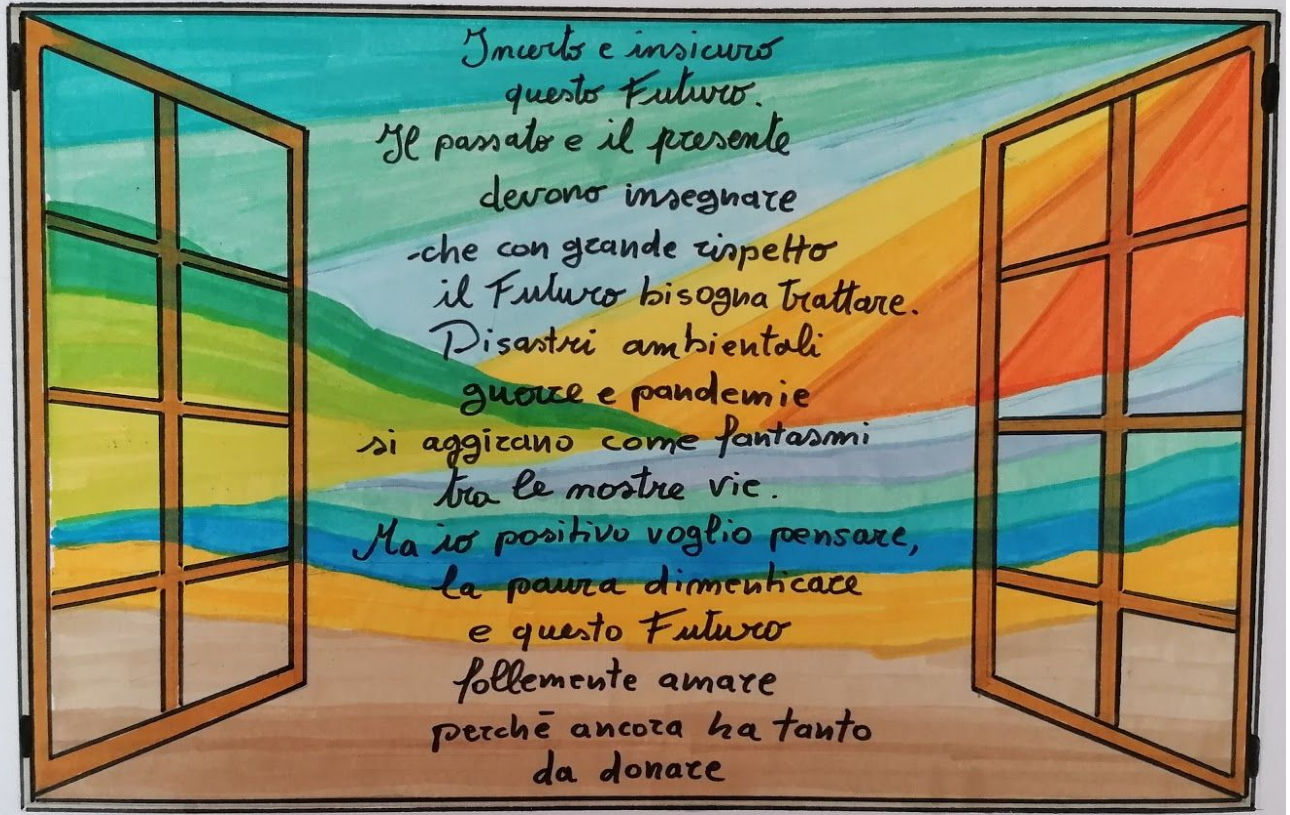 Incerto e insicuro
questo Futuro.
Il passato e il presente
devono insegnare
-che con grande rispetto
il Futuro bisogna trattare.
Disastri ambientali
guerre e pandemie
si aggirano come fantasmi
tra le nostre vie.
Ma io positivo voglio pensare,
la paura dimenticare
e questo Futuro
follemente amare
perchē ancora ha tanto
da donare